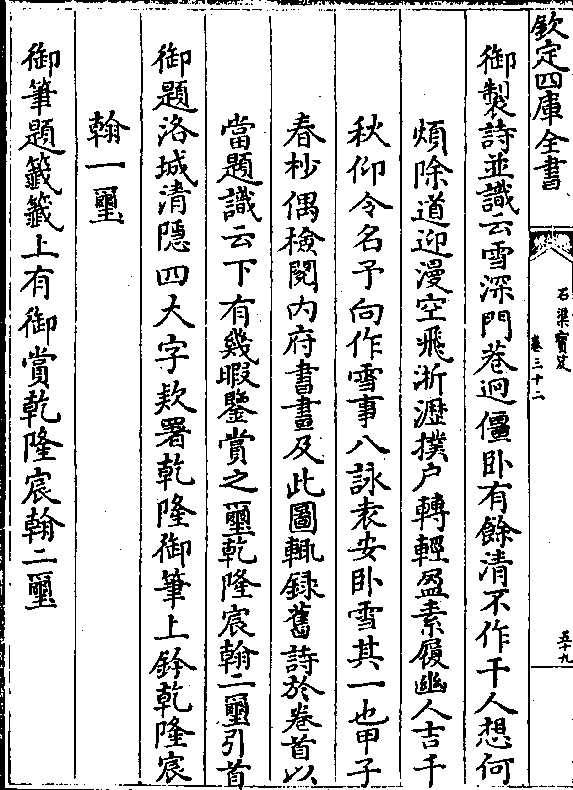 欽定四庫全書
石渠寶笈
卷三十二
五十九
御製詩並識云雪深門巷迥僵卧有餘清不作干人想何
煩除道迎漫空飛淅瀝撲户轉輕盈素履幽人吉千
秋仰令名予向作雪事八詠袁安卧雪其一也甲子
春杪偶檢閲内府書畫及此圖輒録舊詩於卷首以
當題識云下有幾暇鑒賞之璽乾隆宸翰二璽引首
御題洛城清隱四大字欵署乾隆御筆上鈐乾隆宸
翰一璽
御筆題籤籤上有御賞乾隆宸翰二璽